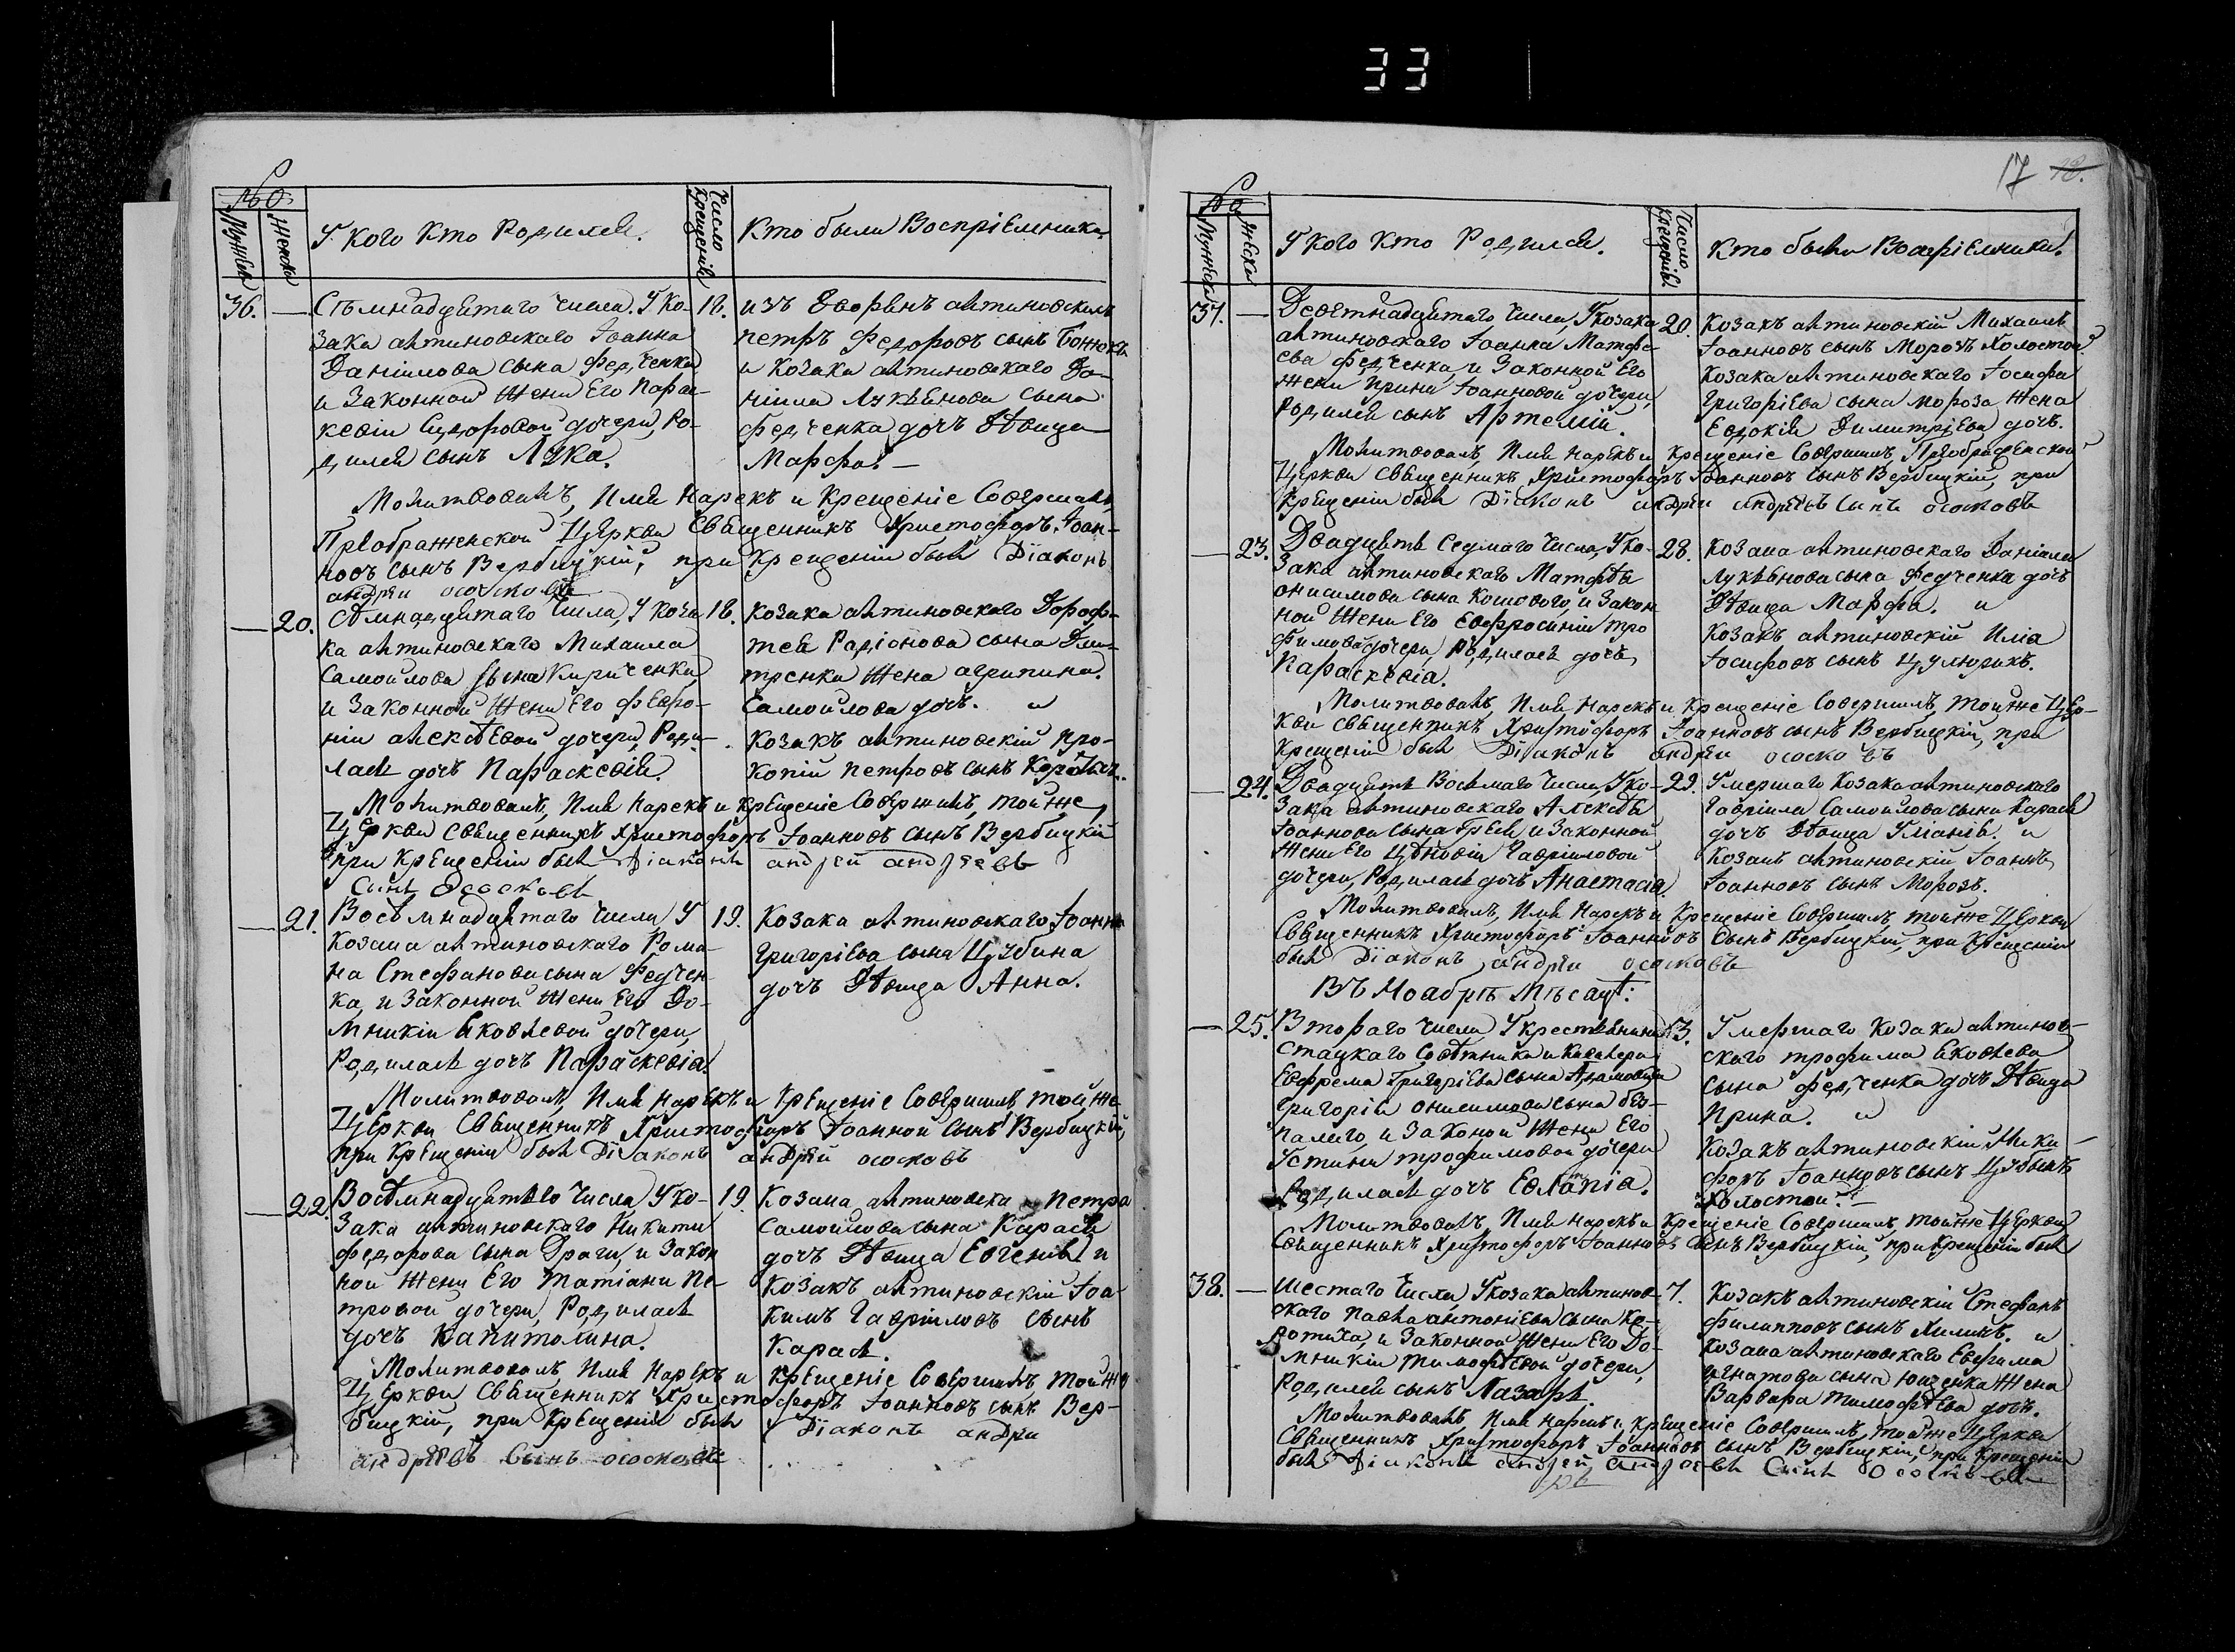 33
17 18.
№
Мужеска
Женска
У кого кто родился.
Число крещенія
Кто были воспріемники
36. — Семнадцятаго числа. У ко-
зака автиновского Іоанна
Даніилова сына Федченка
и законной жени его Парас-
кевіи Сидоровой дочери, ро-
дился сынъ Лука.
18. изъ дворянъ автиновскихъ
петръ Федоровъ сынъ
и козака автиновского Да-
ніила Лукьянова сына
федченка дочъ дѣвица
Марфа. —
Молитвовалъ, имя нарекъ и крещеніе совершилъ,
Преображенской церкви священникъ Христофоръ Іоан-
новъ сынъ Вербицкій, при крещеніи былъ Діаконъ
андрей ососковъ
— 20. Семнадцятаго числа, у коза
ка автиновского Михаила
Самойлова сына Кириченка,
и законной жени его февро-
ніи алексѣевой дочери, роди-
лась дочъ Параскевія.
18. козака автиновского Дороф-
тея Радіонова сына Дми-
тренка жена агрипина
Самойлова дочъ. и
козакъ автиновскій про-
копій петровъ сынъ
Молитвовалъ, имя нарекъ и крещеніе совершилъ, тойже
церкви священникъ Христофоръ Іоанновъ сынъ Вербицкій
при крещеніи былъ Діаконъ андрей андреевъ
сынъ Ососковъ
— 21. Восемнадцятаго числа у
козака автиновского Рома-
на Стефанова сына Федчен-
ка, и законной жени его До-
мникіи Яковлевой дочери,
родилась дочъ Параскевія.
19. козака автиновского Іоанна
григоріева сына Цубина
дочъ дѣвица Анна.
Молитвовалъ, имя нарекъ и крещеніе совершилъ, тойже
церкви священникъ Христофоръ Іоанновъ сынъ Вербицкій,
при крещеніи былъ Діаконъ андрей ососковъ
— 22. Восѣмнадцятаго числа у ко-
зака автиновского Никити
федорова сына Драги, и закон
ной жени его татіани Пе-
тровой дочери, родилась
дочъ Капитолина.
19. козака автиновска петра
Самойлова сына Карася
дочъ дѣвица Евгенія и
козакъ автиновскій Іоа
кимъ гавріиловъ сынъ
Карась.
Молитвовалъ, имя нарекъ и крещеніе совершилъ тойже
церкви священникъ Христофоръ Іоанновъ сынъ Вер-
бицкій, при крещеніи былъ Діаконъ андрй
андреевъ сынъ ососковъ
№
Мужеска
Женска
У кого кто родился.
Число крещенія
Кто были воспріемники.
37. — Деветнадцятаго числа, у козака
автиновского Іоанна Матфе-
ева федченка, и законной его
жени Ирини Іоанновой дочери,
родился сынъ Артемій.
20. козакъ автиновскій Михаилъ
Іоанновъ сынъ Морозъ холостой.
козака автиновского Іосифа
григоріева сына мороза жена
Евдокія Димитріева дочъ.
Молитвовалъ, имя нарекъ и крещеніе совершилъ, Преображенской
церкви священникъ Христофоръ Іоанновъ сынъ Вербицкій, при
крещеніи былъ Діаконъ андрей андреевъ сынъ ососковъ
— 23. Двадцять седмаго числа, у ко-
зака автиновского Матфѣя
онисимова сына Кошового, и закон
ной жени его Евфросиніи тро
фимовой дочери, родилась дочъ
Параскевія.
28. козака автиновского Даніила
Лукьянова сына Федченка дочъ
дѣвица Марфа. и
козакъ автиновскій Илія
Іосифовъ сынъ Цулюрикъ.
Молитвовалъ, имя нарекъ и крещеніе совершилъ, тойже цер-
кви священникъ Христофоръ Іоанновъ сынъ Вербицкій, при
крещеніи былъ Діаконъ андрей ососковъ
— 24. Двадцять восѣмаго числа, у ко-
зака автиновского Алексѣя
Іоаннова сына и законной
жени его гавріиловой
дочери, родилась дочъ Анастасія.
29. умершаго козака автиновского
гавріила Самойлова сына Карася
дочъ дѣвица Уліанія. и
козакъ автиновскій Іоаннъ
Іоанновъ сынъ Морозъ.
Молитвовалъ, имя нарекъ и крещеніе совершилъ, тойже церкви
священникъ Христофоръ Іоанновъ сынъ Вербицкій, при крещеніи
былъ Діаконъ андрей ососковъ
Въ Ноабрѣ Мѣсацѣ:
— 25. Втораго числа у крестьянина
стацкаго совѣтника и кавалера
Евфрема Григоріева сына
григорія онисимова сына без-
палаго, и законой жени его
устини трофимовой дочери
родилась дочъ Евлапія.
3. умершаго козака автинов-
ского трофима Яковлева
сына федченка дочъ дѣвица
Ирина. и
козакъ автиновскій Ники-
форъ Іоанновъ сынъ Цубынъ
холостой. —
Молитвовалъ, имя нарекъ и крещеніе совершилъ, тойже церкви
священникъ Христофоръ Іоанновъ сынъ Вербицкій, при крещеніи былъ
38. — Шестаго числа, у козака автинов-
ского Павла антоніева сына Ко-
ротиха, и законной жени его До-
мникіи тимофѣевой дочери,
родился сынъ Лазарь.
7. козакъ автиновскій Стефанъ
филипповъ сынъ Хиличъ. и
козака автиновского Евфима
игнатова сына Ющенка жена
Варвара тимофѣева дочъ.
Молитвовалъ, имя нарекъ и крещеніе совершилъ, тойже церкви
священникъ Христофоръ Іоанновъ сынъ Вербицкій, при крещеніи
былъ Діаконъ андрей андреевъ сынъ Ососковъ